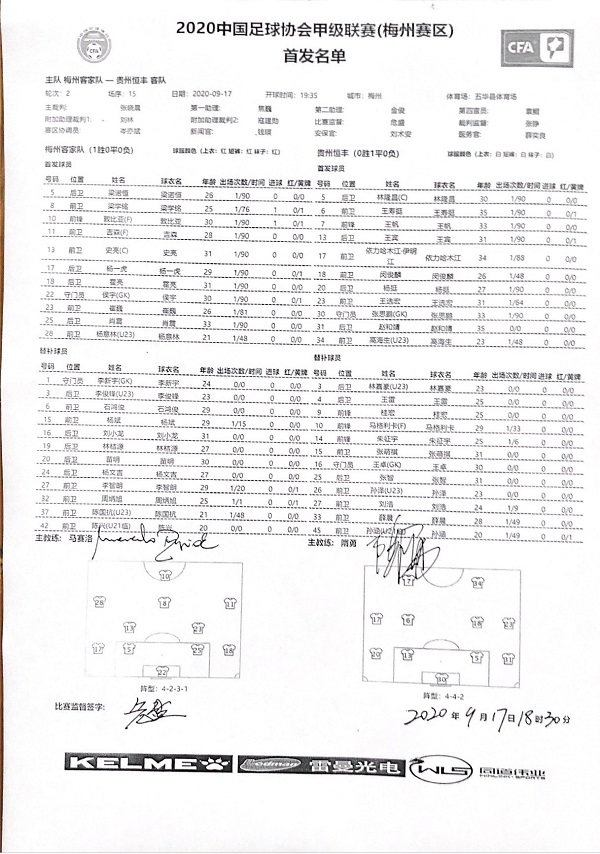 2020中国足球协会甲级联赛(梅州赛区)
首发名单
CFA
主队 梅州客家队 — 贵州恒丰 客队
轮次: 2 场序: 15 日期: 2020-09-17 开球时间: 19:35 城市: 梅州 体育场: 五华县体育场
主裁判: 张晓晨 第一助理: 焦巍 第二助理: 金俊 第四官员: 袁鲲
附加助理裁判1: 刘林 附加助理裁判2: 寇建勋 比赛监督: 危盛 裁判监督: 张铮
赛区协调员: 岑亦斌 新闻官: 钱颂 安保官: 刘术安 医务官: 薛奕良
梅州客家队 (1胜0平0负) 球服颜色 (上衣: 红 短裤: 红 袜子: 红) 贵州恒丰 (0胜1平0负) 球服颜色 (上衣: 白 短裤: 白 袜子: 白)
首发球员 首发球员
号码 位置 姓名 球衣名 年龄 出场次数/时间 进球 红/黄牌 号码 位置 姓名 球衣名 年龄 出场次数/时间 进球 红/黄牌
5 后卫 梁诺恒 梁诺恒 26 1/90 0 0/0 5 后卫 林隆昌(C) 林隆昌 30 1/90 0 0/0
8 前卫 梁学铭 梁学铭 25 1/76 1 0/1 6 前卫 王寿挺 王寿挺 35 1/90 0 0/1
10 前锋 敦比亚(F) 敦比亚 30 1/90 1 0/1 7 前锋 王帆 王帆 33 1/90 0 0/0
11 前卫 吉森(F) 吉森 28 1/90 0 0/0 13 后卫 王宾 王宾 31 1/90 0 0/1
13 前卫 史亮(C) 史亮 31 1/90 0 0/0 17 前卫 依力哈木江·伊明江 依力哈木江 34 1/88 0 0/0
17 后卫 杨一虎 杨一虎 29 1/90 0 0/1 18 前卫 闵俊麟 闵俊麟 26 1/48 0 0/0
18 后卫 霍亮 霍亮 31 1/90 0 0/0 20 后卫 杨挺 杨挺 27 1/90 0 0/0
22 守门员 侯宇(GK) 侯宇 30 1/90 0 0/1 23 前卫 王选宏 王选宏 31 1/64 0 0/0
23 前卫 崔巍 崔巍 26 1/81 0 0/0 30 守门员 张思鹏(GK) 张思鹏 33 1/90 0 0/0
25 后卫 肖震 肖震 33 1/90 0 0/0 31 后卫 赵和靖 赵和靖 35 0/0 0 0/0
28 前卫 杨意林(U23) 杨意林 21 1/48 0 0/0 34 前卫 高海生(U23) 高海生 23 1/48 0 0/0
替补球员 替补球员
号码 位置 姓名 球衣名 年龄 出场次数/时间 进球 红/黄牌 号码 位置 姓名 球衣名 年龄 出场次数/时间 进球 红/黄牌
1 守门员 李新宇(GK) 李新宇 24 0/0 0 0/0 3 后卫 林嘉豪(U23) 林嘉豪 23 0/0 0 0/0
3 后卫 李俊锋(U23) 李俊锋 23 0/0 0 0/0 4 后卫 王霄 王霄 25 0/0 0 0/0
6 前卫 石鸿俊 石鸿俊 29 0/0 0 0/0 9 前锋 桂宏 桂宏 25 0/0 0 0/0
15 前卫 杨斌 杨斌 29 1/15 0 0/0 10 前锋 马格利卡(F) 马格利卡 29 1/33 0 0/0
16 后卫 刘小龙 刘小龙 31 0/0 0 0/0 14 前锋 朱征宇 朱征宇 25 1/6 0 0/0
19 后卫 林桔源 林桔源 27 0/0 0 0/0 15 前卫 张萌琪 张萌琪 31 0/0 0 0/0
20 后卫 苗明 苗明 30 0/0 0 0/0 16 守门员 王卓(GK) 王卓 30 0/0 0 0/0
24 后卫 杨文吉 杨文吉 27 0/0 0 0/0 25 后卫 张智 张智 31 0/0 0 0/0
27 前卫 李智朗 李智朗 29 1/20 0 0/1 26 前卫 孙泽(U23) 孙泽 23 0/0 0 0/0
32 前卫 周炳旭 周炳旭 25 1/1 0 0/0 27 前卫 刘浩 刘浩 24 1/9 0 0/0
37 前卫 陈国抗(U23) 陈国抗 21 1/48 0 0/0 33 前卫 薛晨 薛晨 28 1/49 0 0/0
42 前卫 陈兴(U21临) 陈兴 20 0/0 0 0/0 45 前卫 孙涵(U21) 孙涵 20 1/49 0 0/1
主教练: 马赛洛 主教练: 隋勇
10 7 34
28 8 11 17 6 18 23
13 23
17 5 25 18 20 13 5 31
22 30
阵型: 4-2-3-1 阵型: 4-4-2
比赛监督签字: 危盛 2020年9月17日18时30分
KELME ledman 雷曼光电 WLS 同道伟业